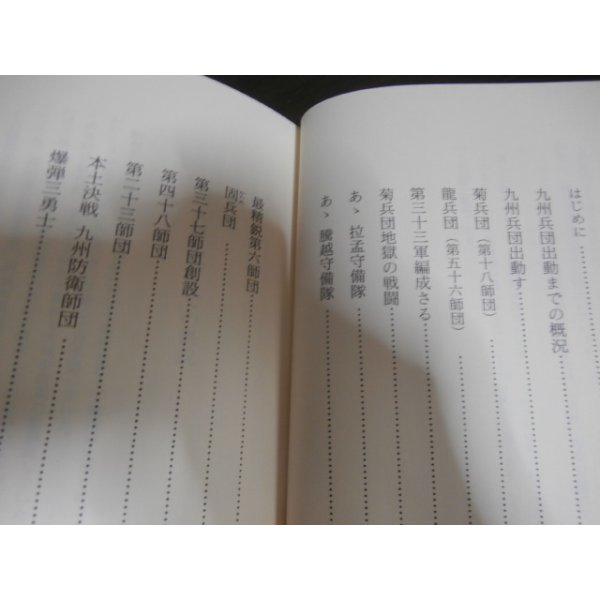 はじめに
九州兵団出動までの概況
九州兵団出動す
菊兵団（第十八師団）
龍兵団（第五十六師団）
第三十三軍編成さる
菊兵団地獄の戦闘
あゝ拉孟守備隊
あゝ騰越守備隊
最精鋭第六師団
固兵団
第三十七師団創設
第四十八師団
第二十三師団
本土決戦 九州防衛師団
爆弾三勇士